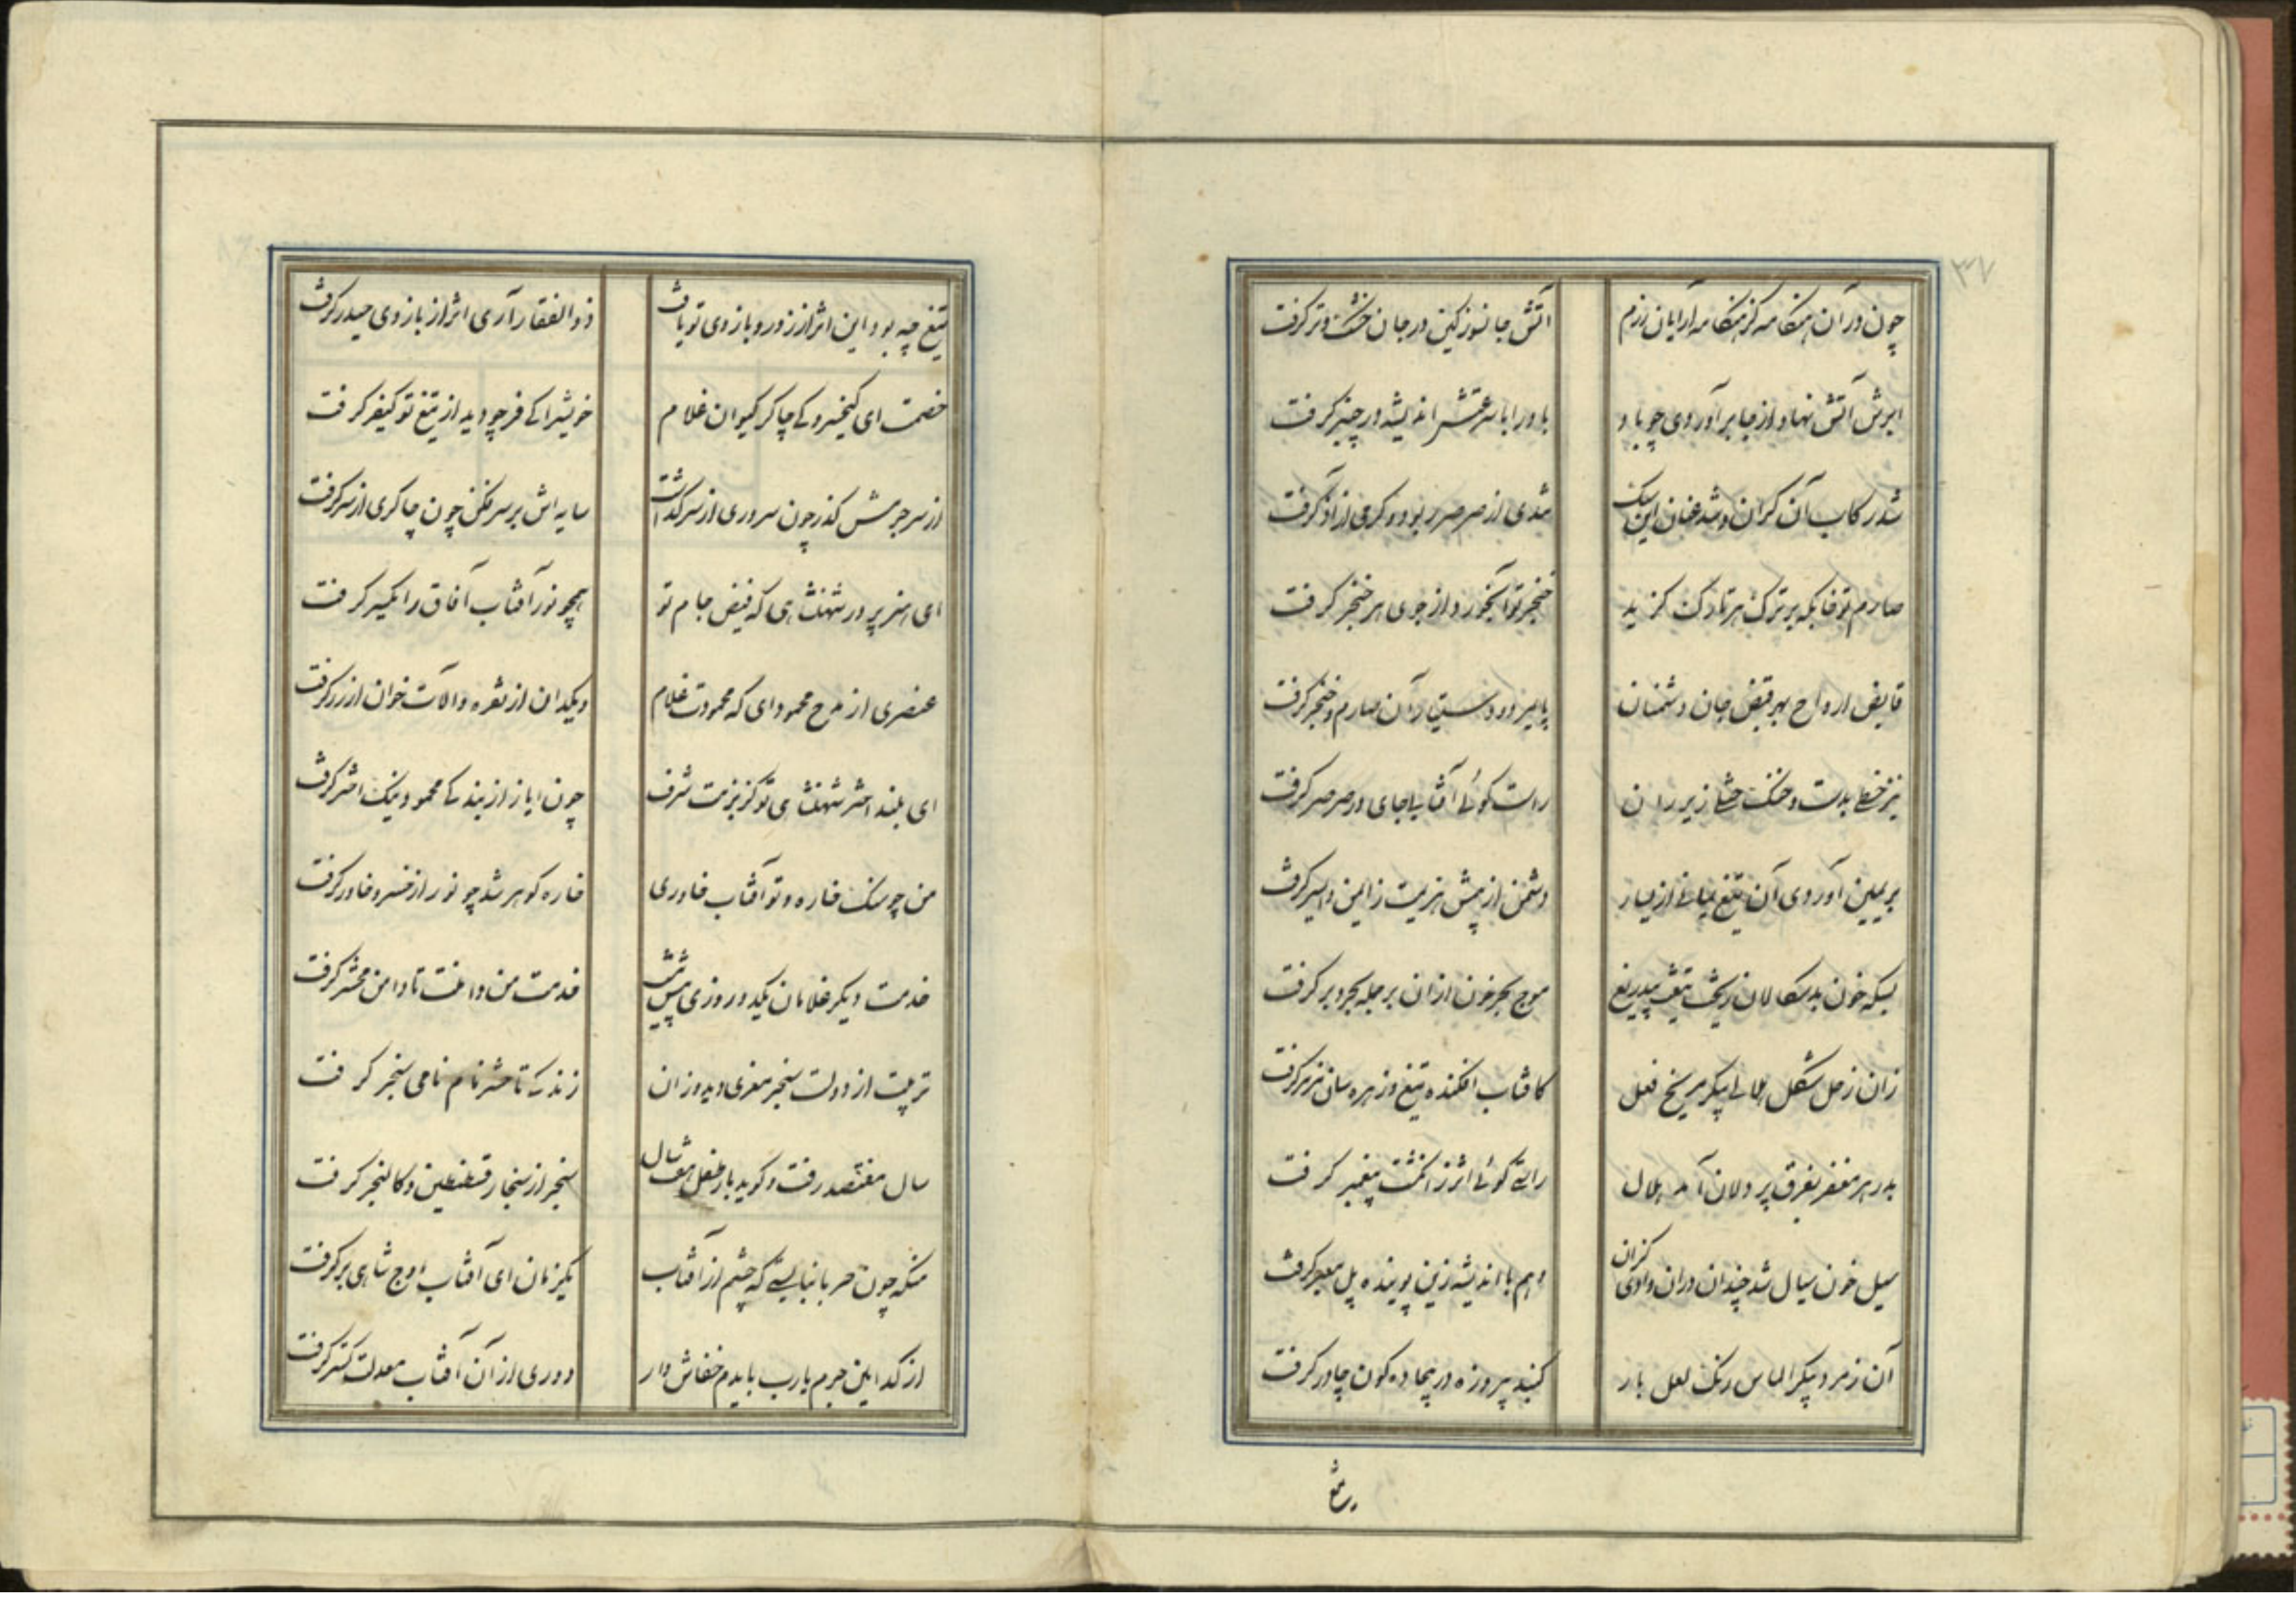 ۳۷
چون در آن هنگامه کز هنگامه آرایان رزم آتش جانسوز کین در جان خشک و تر گرفت
ابرش آتش نهاد از جا برآوردی چو باد باد را با سرعتش اندیشه در چنبر گرفت
شد رکاب آن گران و شد عنان این سبک شدی از صرصر ربود و گرمی از آذر گرفت
صارم تو خایگه بر ترک هر تارک گزید خنجر تو آبخور از جوی هر خنجر گرفت
قابض ارواح بهر قبض جان دشمنان پایمزد و دستی زآن صارم و خنجر گرفت
نیز خطی بدست و خنک ختلی زیر ران راست گوئی آفتابی جای در صرصر گرفت
بر یمین آوردی آن تیغ یمانی از یسار دشمن از پیش هزیمت ز ایمن و ایسر گرفت
بسکه خون بدسگالان ریخت تیغت بیدریغ موج بحر خون از آن بر جمله بحر و بر گرفت
زان زحل شکل هلالی پیکر مریخ فعل کافتاب افکنده تیغ و زهره سان مزهر گرفت
بدر هر مغفر بفرق پر دلان آمد هلال راستی گوئی اثر ز انگشت پیغمبر گرفت
سیل خون سیال شد چندان در آن وادی کزان وهم با اندیشه زین پوینده پل معبر گرفت
آن زمرد پیکر الماس رنگ لعل بار گنبد پیروزه در بیجاده گون چادر گرفت
تیغ
تیغ چه بود این اثر از زور و بازوی تو یافت ذوالفقار آری اثر از بازوی حیدر گرفت
خصمت ای کیخسرو کی چاکر کیوان غلام خویش را کی فر چو دید از تیغ تو کیفر گرفت
از سر جرمش گذر چون سروری از سر گذاشت سایه اش بر سر فکن چون چاکری از سر گرفت
ای هنرپرور شهنشاهی که فیض جام تو همچو نور آفتاب آفاق را یکسر گرفت
عنصری از مدح محمود ای که محمودت غلام دیگدان از نقره و آلات خوان از زر گرفت
ای بلند اختر شهنشاهی تو کز بزمت شرف چون ایاز از بندگی محمود نیک اختر گرفت
من چو سنگ خاره و تو آفتاب خاوری خاره گوهر شد چو نور از خسرو خاور گرفت
خدمت دیگر غلامان یکدو روزی بیش نیست خدمت من دامنت تا دامن محشر گرفت
تربیت از دولت سنجر معزی دید و زان زندگی تا حشر نام نامی سنجر گرفت
سال هفتصد رفت و گوید باز طفل هفت سال سنجر از سنجار قسطنطین و کالنجر گرفت
منکه چون حربا نبایستی که چشم از آفتاب یکزمان ای آفتاب اوج شاهی بر گرفت
از کدامین جرم یارب بایدم خفاش وار دوری از آن آفتاب معدلت گستر گرفت